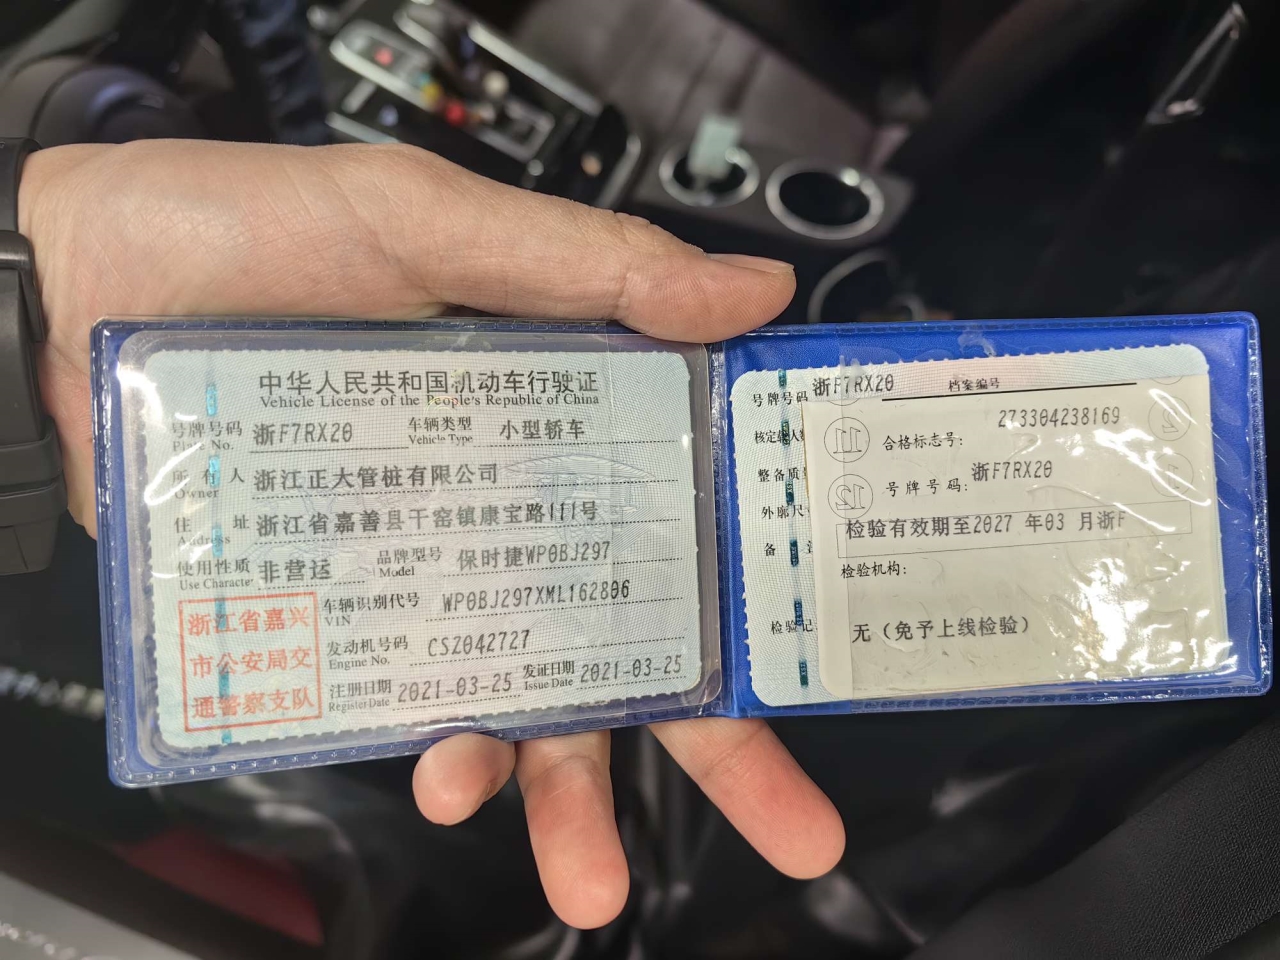 中华人民共和国机动车行驶证
Vehicle License of the People's Republic of China
号牌号码 浙F7RX20 车辆类型 小型轿车
Plate No. Vehicle Type
所有人 浙江正大管桩有限公司
Owner
住址 浙江省嘉善县干窑镇康宝路111号
Address
使用性质 非营运 品牌型号 保时捷WP0BJ297
Use Character Model
浙江省嘉兴
市公安局交
通警察支队
车辆识别代号 WP0BJ297XML162806
VIN
发动机号码 CSZ042727
Engine No.
注册日期 2021-03-25 发证日期 2021-03-25
Register Date Issue Date
号牌号码 浙F7RX20 档案编号
核定载人数
整备质量
外廓尺寸
备注
检验记
11
12
合格标志号: 273304238169
号牌号码: 浙F7RX20
检验有效期至2027 年03 月浙F
检验机构:
无（免予上线检验）